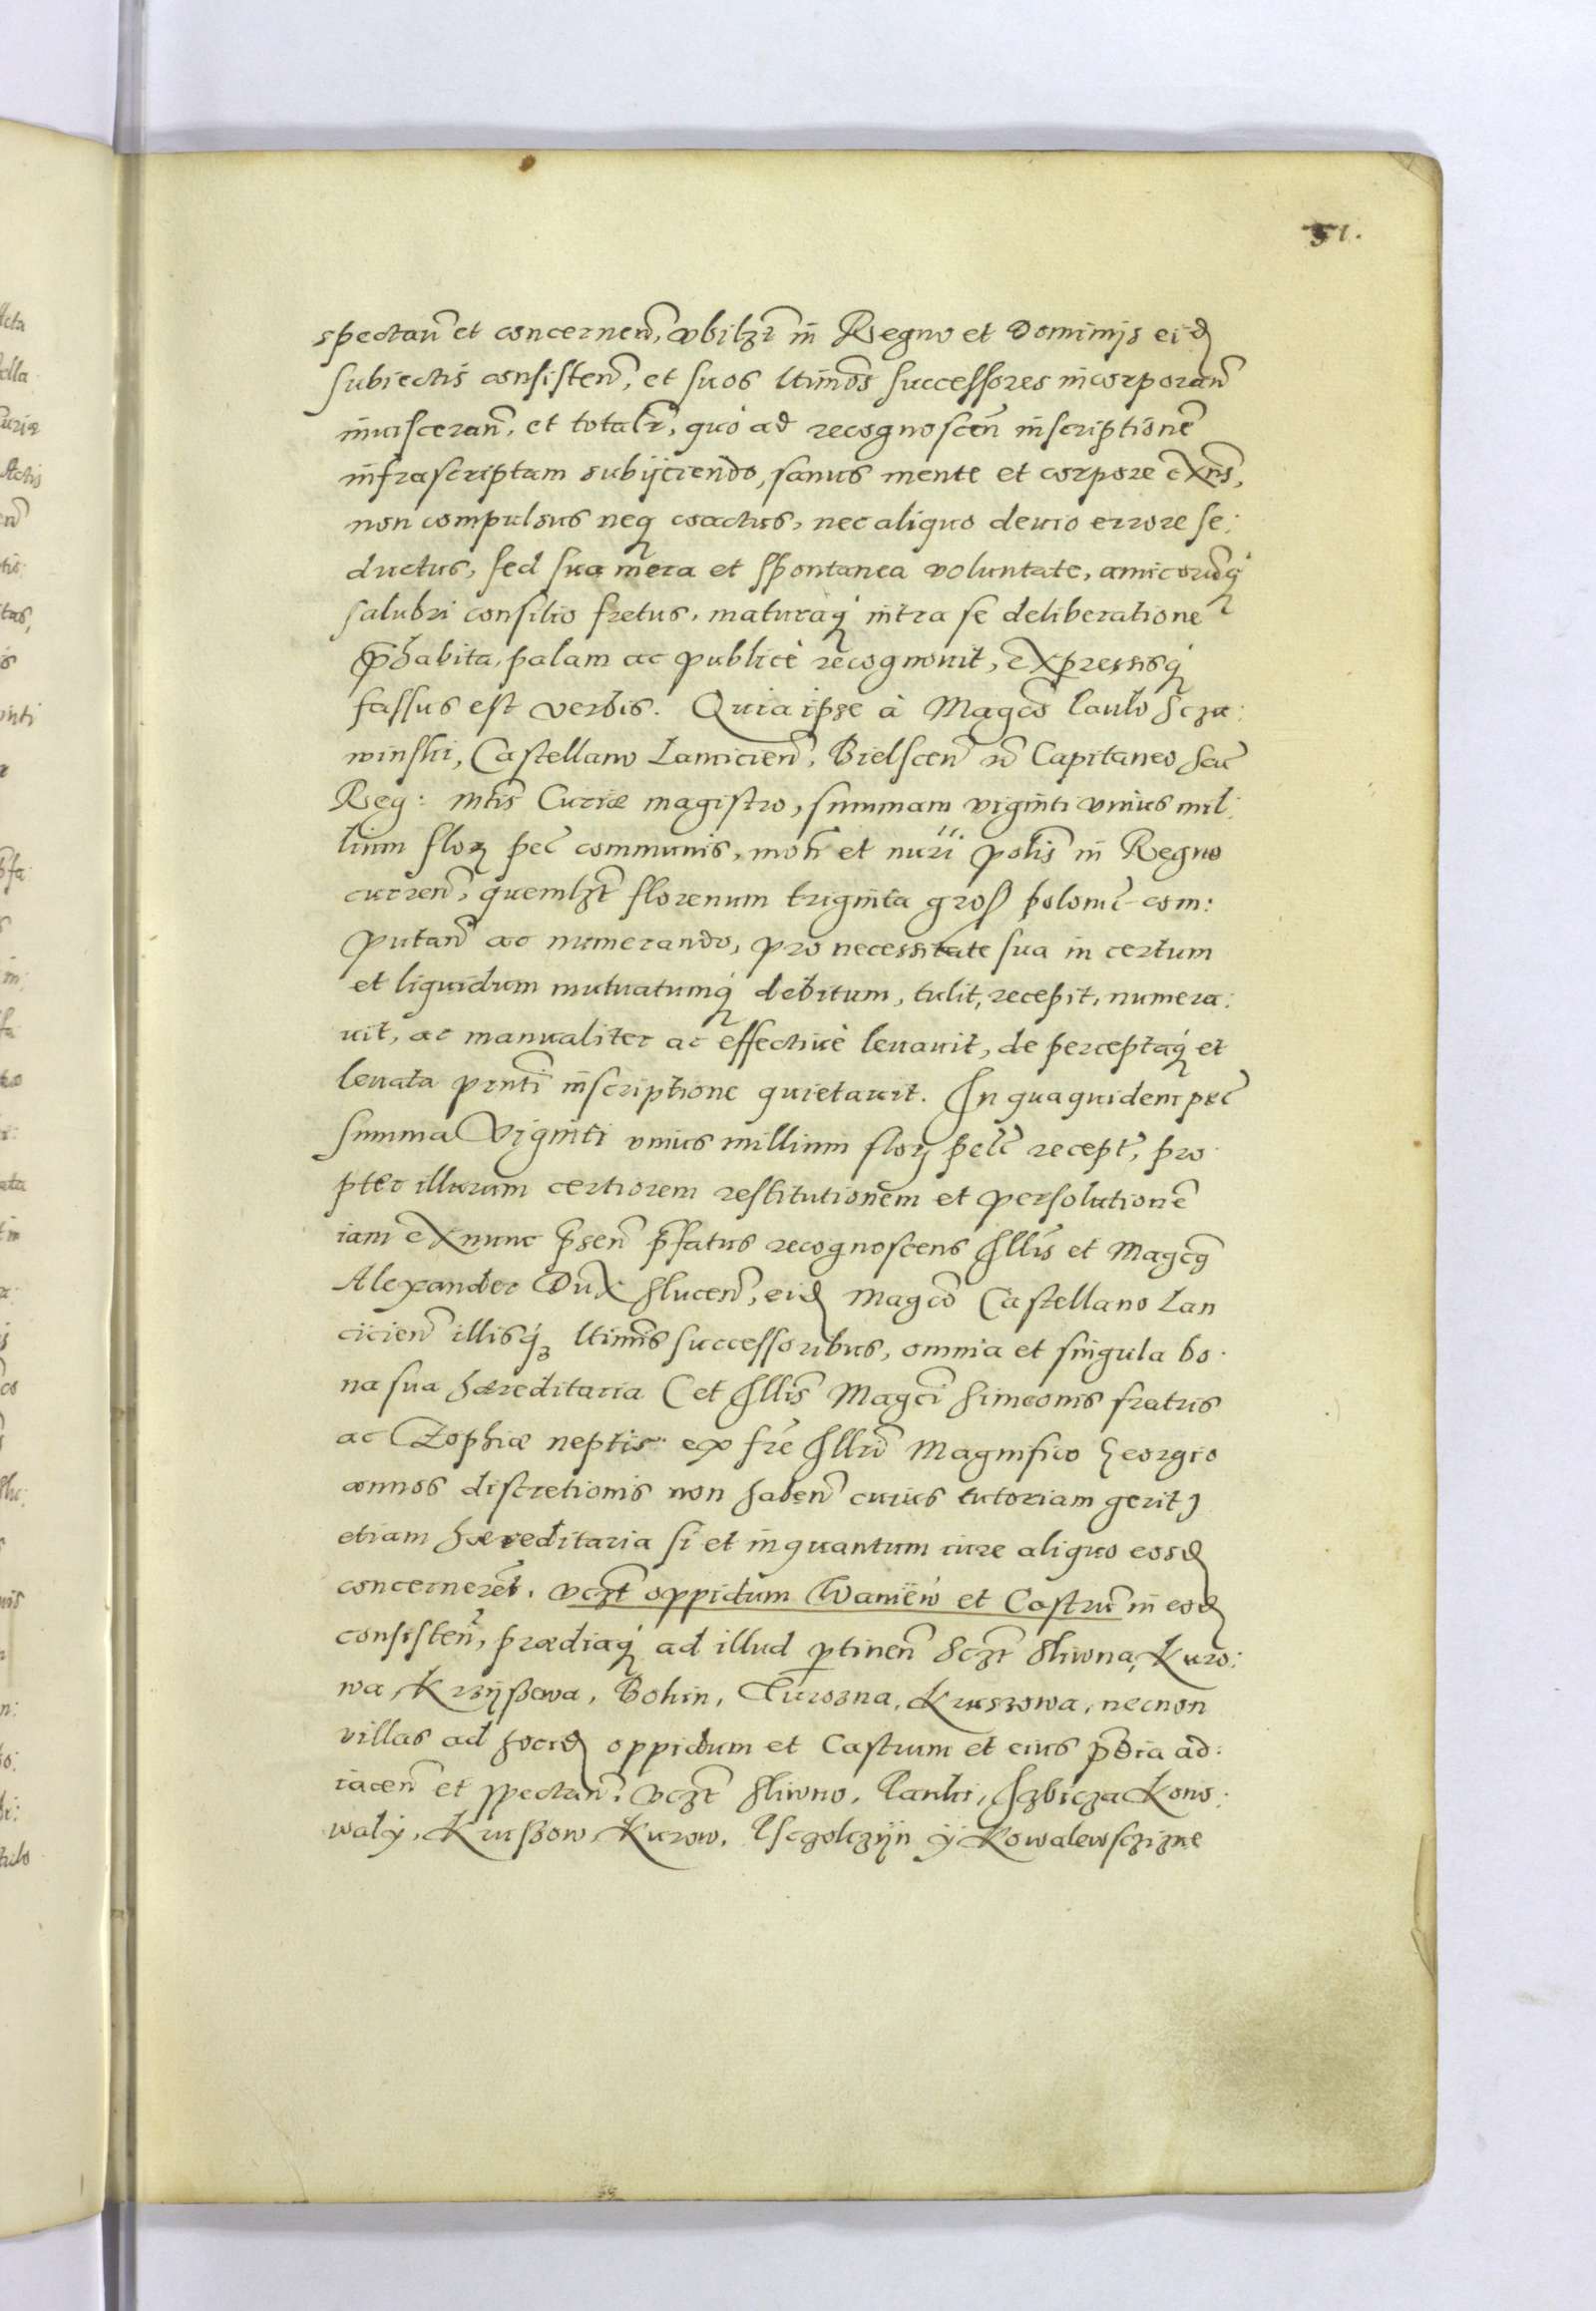 51.
spectan̄ et concernen̄, vbilzt in Regno et Dominijs eid
subiectis consisten̄, et suos ltimos successores incorporan̄
inuisceran̄, et totalr, quo ad recognoscen̄ inscriptionē
infrascriptam subijciendo, sanus mente et corpore exns,
non compulsus neq coactus, nec aliquo deuio errore se:
ductus, sed sua mera et spontanea voluntate, amicorūq
salubri consilio fretus, maturaq intra se deliberatione
p̄habita, palam ac publicè recognouit, expressisq
fassus est verbis. Quia ipse à Magco Paulo Scza:
winski, Castellano Lanicien̄, Bielscen̄ Capitaneo Sac
Reg: Mtis Curiæ magistro, summam viginti vnius mil:
lium flor pec communis, mon et nūri polis in Regno
curren̄, quemlzt florenum triginta gros polonic com:
putan̄ ac numerando, pro necessitate sua in certum
et liquidum mutuatumq debitum, tulit, recepit, numera:
uit, ac manualiter ac effectiuè leuauit, de perceptaq et
leuata pnti inscriptione quietauit. In quaquidem pec
summa Viginti vnius millium flor pec recept, pro
pter illarum certiorem restitutionem et persolutionē
iam ex nunc p̄sen̄ p̄fatus recognoscens Illis et Magcg
Alexander Dux Slucen̄, eid Magco Castellano Lan
cicien̄ illisq ltimis successoribus, omnia et singula bo:
na sua hæreditaria (et Illis Magci Simeonis fratris
ac Zophiæ neptis ex frē Illri Magnifico Georgio
annos discretionis non haben̄ cuius tutoriam gerit)
etiam hæreditaria si et inquantum iure aliquo eosd
concerneret, vczt oppidum Waniew et Castrū in eod
consisten̄, prædiaq ad illud ptinen̄ Sczt Sliwna, Kuro:
wa, Krzÿßewa, Bohin, Turozna, Kruszowa, necnon
villas ad hocid oppidum et Castrum et eius p̄dia ad:
iacen̄ et spectan̄. vczt Sliwno, Panki, Iczbicza Kono:
walÿ, Krußow, Kurow, Pſczolczÿn ÿ Kowalewsczizne